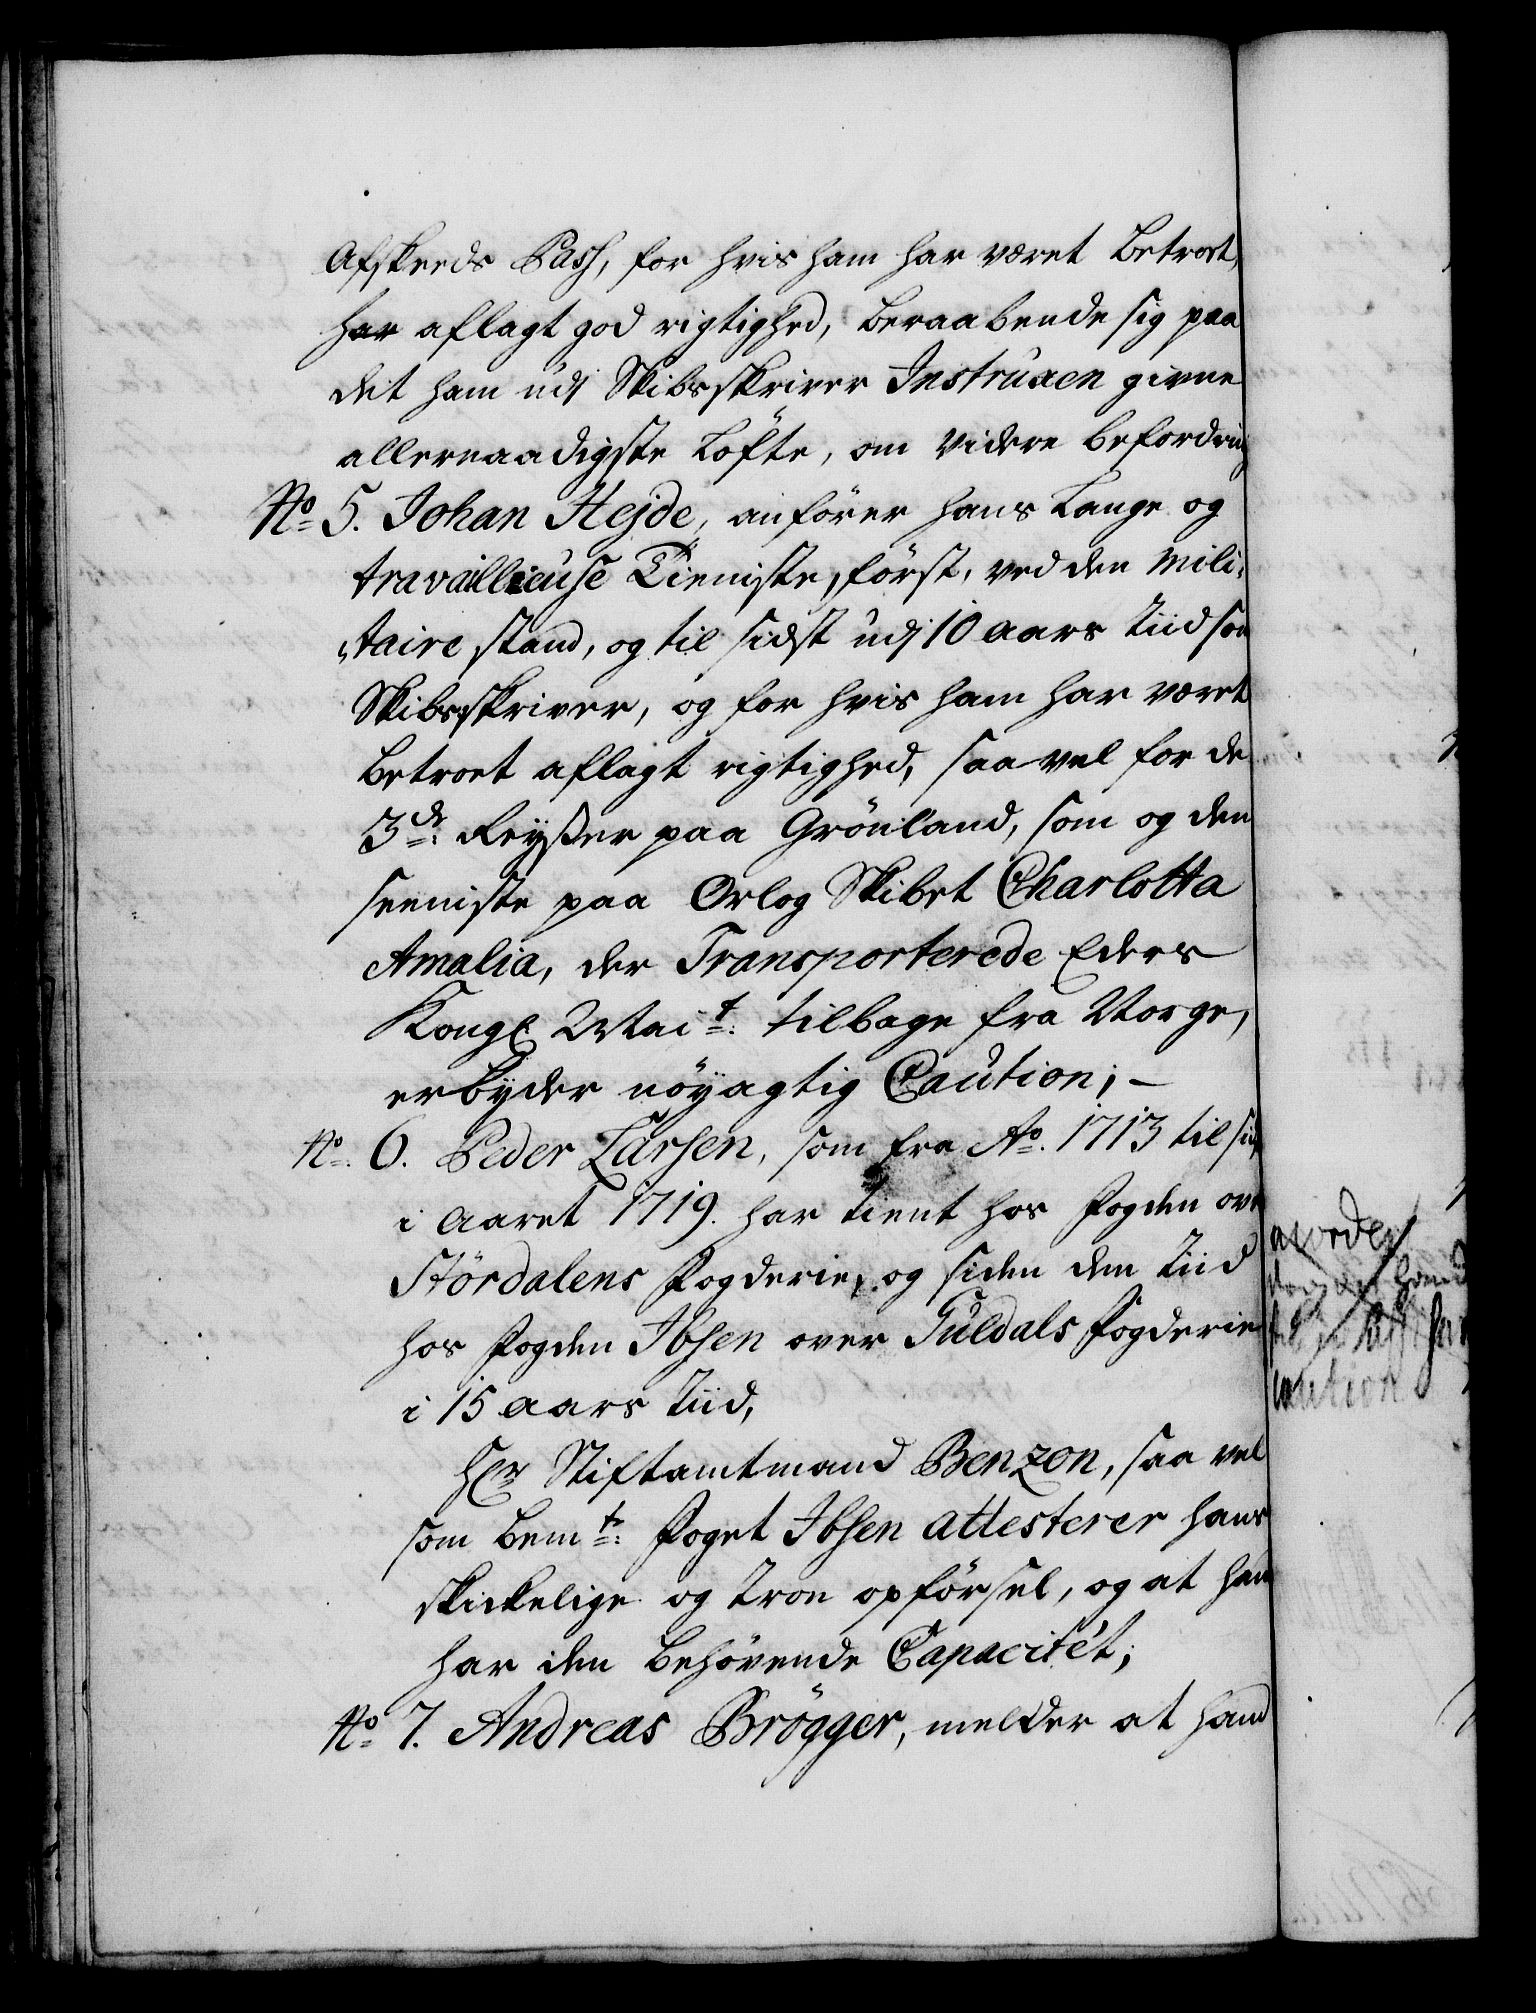 Afskeeds Pass, for hvis ham har været betroet,
har aflagt god rigtighed, beraabende sig paa
det ham udj Skibsskriver Instruxen givne
allernaadigste Löfte, om videre befordring
No 5. Johan Hejde, anförer hans lange og
travaillieuse Tieniste, först, ved den mili-
taire stand, og til sidst udj 10 aars tiid som
Skibsskriver, og for hvis ham har været
betroet aflagt rigtighed, saa vel for de
3de Reyser paa Grönland, som og den
seeniste paa Orlog Skibet Charlotta
Amalia, der Transporterede Eders
Kongl Mait: tilbage fra Norge,
erbyder nöyagtig Caution; –
No: 6. Peder Larsen, som fra Ao. 1713 til
i aaret 1719. har tient hos Fogden over
Stördalens Fogderie, og siden den Tiid
hos Fogden Ibsen over Guldals Fogderie
i 15 aars Tiid,
Hr Stiftamtmand Benzon, saa vel
som bemte: Foget Ibsen attesterer hans
skickelige og troe opförsel, og at hand
har den behövende Capacitét;
No 7. Andreas Brögger, melder at hand
caution